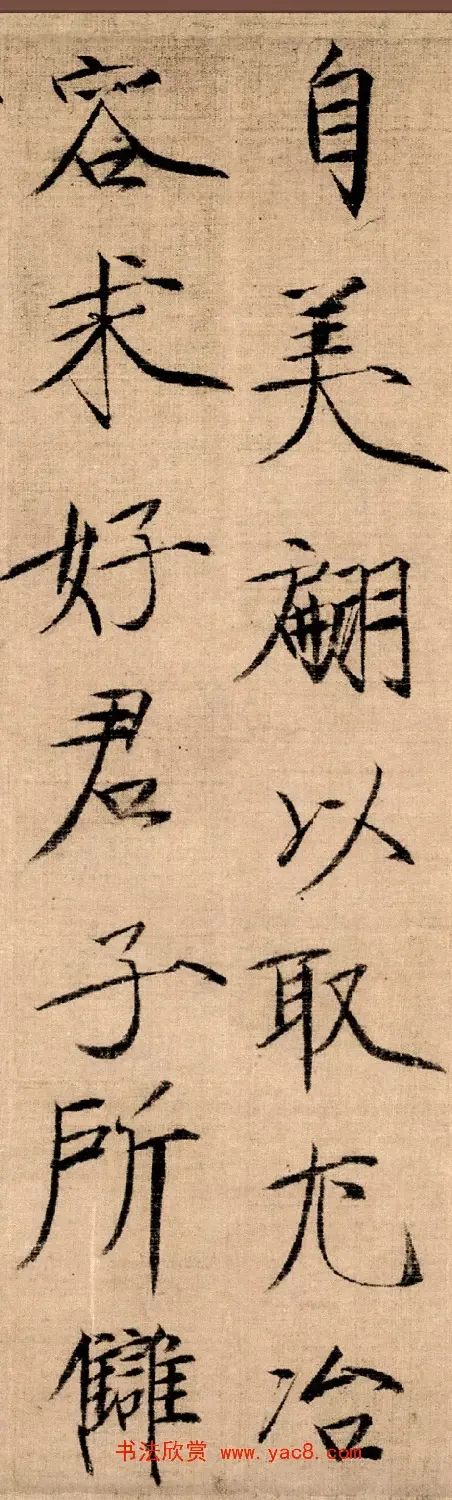 自美翩以取尤冶
容求好君子所讎
书法欣赏 www.yac8.com